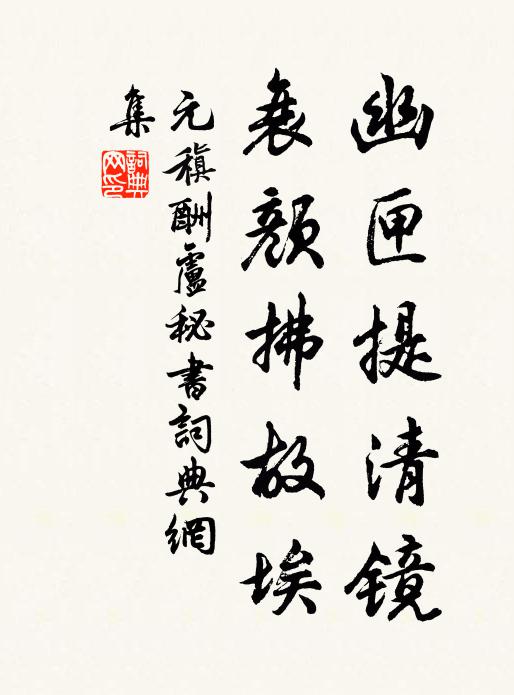 幽匣提清镜
衰颜拂故埃
元稹酬盧秘書詞典網
集
詞典
网印